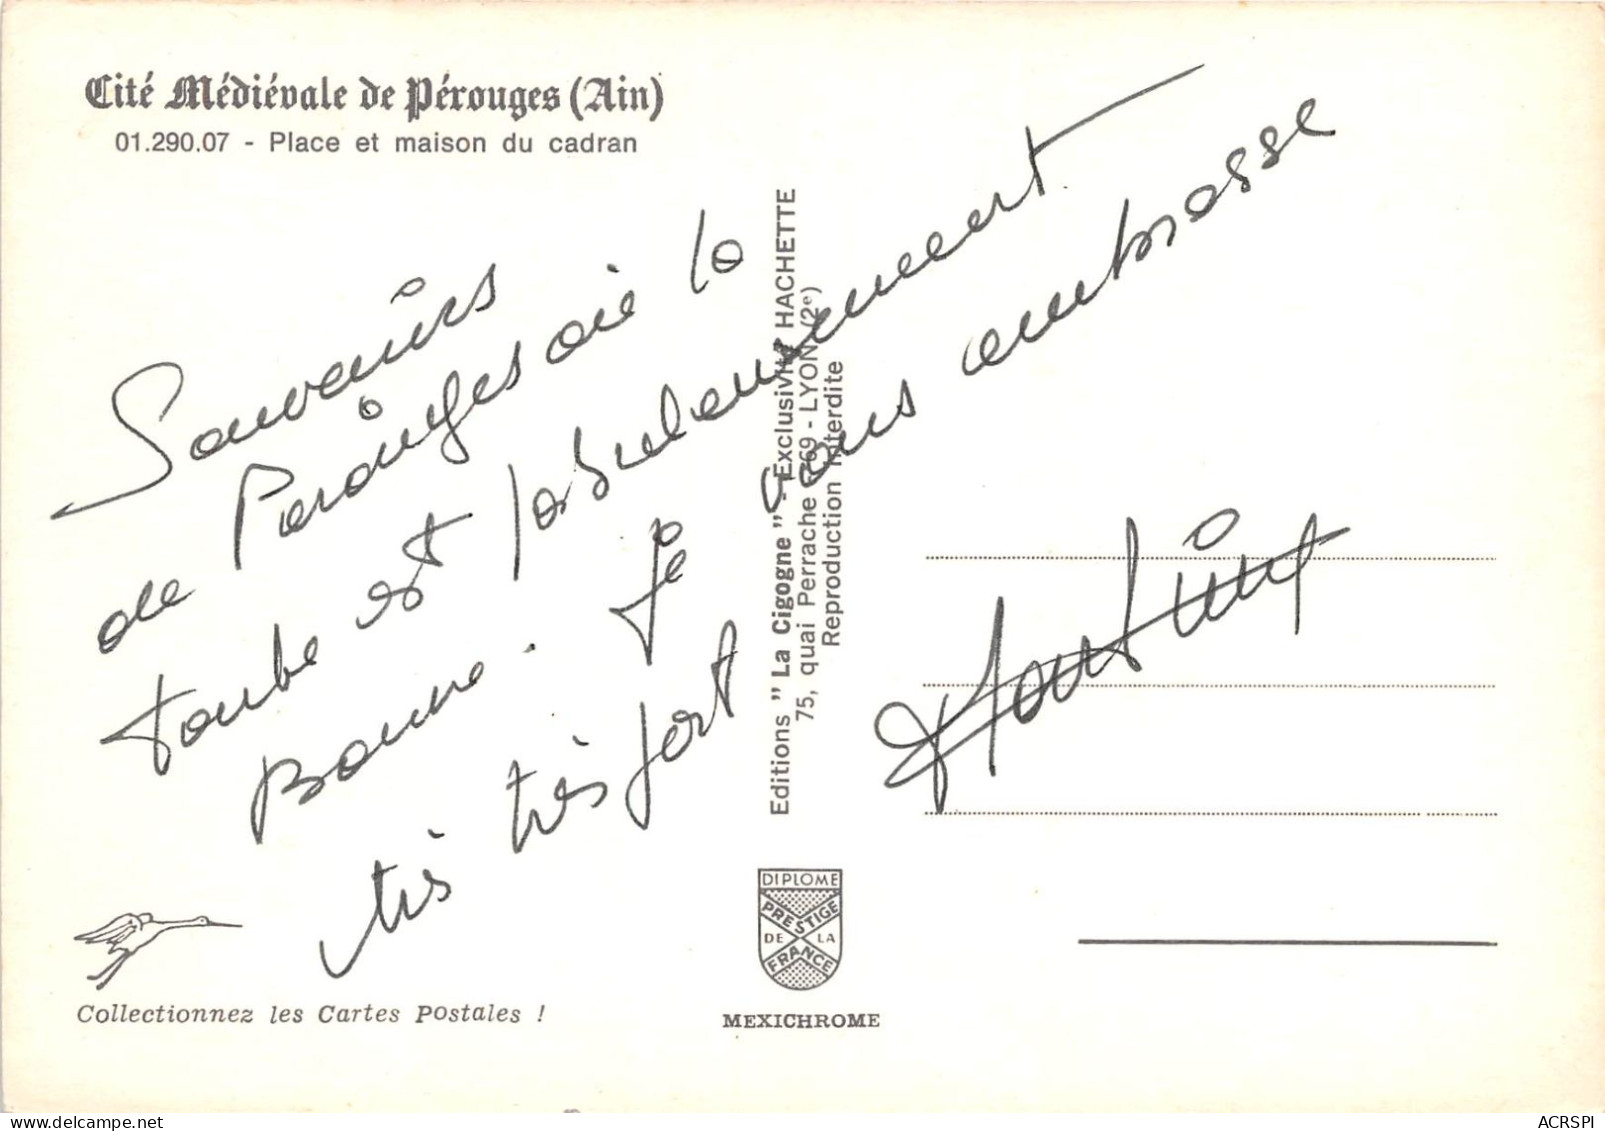 Cité Médiévale de Pérouges (Ain)
01.290.07 - Place et maison du cadran
Souvenirs
de Perouges où la
Tombe est fabuleusement
Bonne. Je vous embrasse
très très fort
Editions " La Cigogne " - Exclusivité HACHETTE
75, quai Perrache - 69 - LYON (2e)
Reproduction Interdite
DIPLOME
PRESTIGE
DE LA
FRANCE
MEXICHROME
Collectionnez les Cartes Postales !
ACRSPI